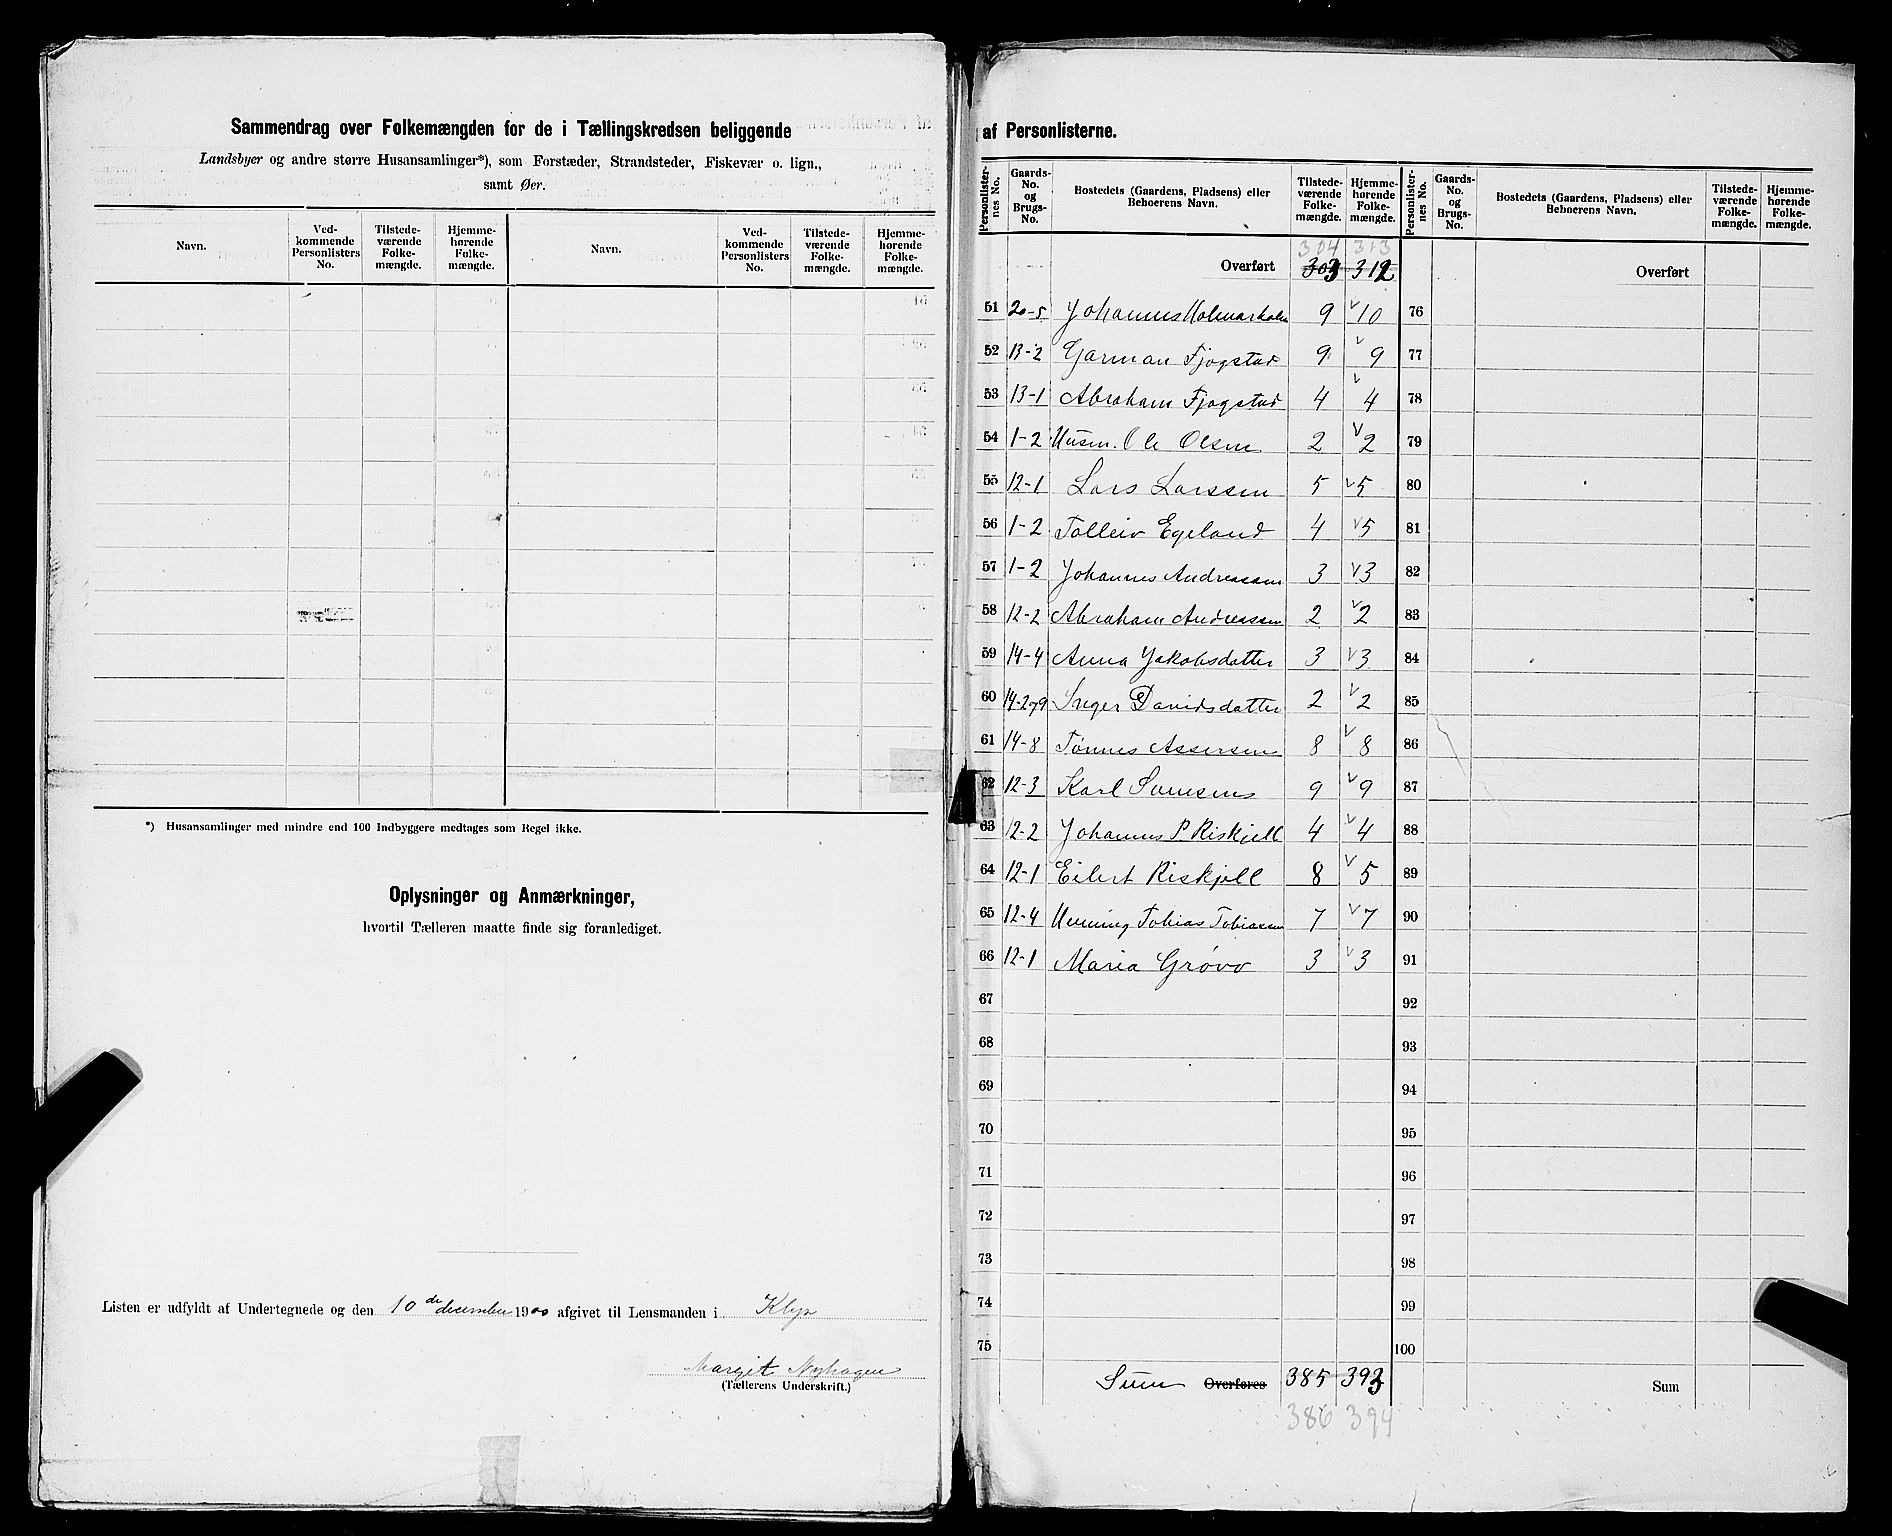 Sammendrag over Folkemængden for de i Tællingskredsen beliggende
Landsbyer og andre større Husansamlinger*), som Forstæder, Strandsteder, Fiskevær o. lign.,
samt Øer.
Navn. Ved-kommende Personlisters No. Tilstede-værende Folke-mængde. Hjemme-hørende Folke-mængde. Navn. Ved-kommende Personlisters No. Tilstede-værende Folke-mængde. Hjemme-hørende Folke-mængde.
*) Husansamlinger med mindre end 100 Indbyggere medtages som Regel ikke.
Oplysninger og Anmærkninger,
hvortil Tælleren maatte finde sig foranlediget.
Listen er udfyldt af Undertegnede og den 10de december 1900 afgivet til Lensmanden i Klep
Margit Nyhagen
(Tællerens Underskrift.)
af Personlisterne.
Personlister-nes No. Gaards-No. og Brugs-No. Bostedets (Gaardens, Pladsens) eller Beboerens Navn. Tilstede-værende Folke-mængde. Hjemme-hørende Folke-mængde. Personlister-nes No. Gaards-No. og Brugs-No. Bostedets (Gaardens, Pladsens) eller Beboerens Navn. Tilstede-værende Folke-mængde. Hjemme-hørende Folke-mængde.
304 313
Overført 303 312 Overført
51 20-5 Johannes 9 10 76
52 13-2 Garman Fjogstad 9 9 77
53 13-1 Abraham Fjogstad 4 4 78
54 1-2 Husm. Ole Olsen 2 2 79
55 12-1 Lars Larssen 5 5 80
56 1-2 Tolleiv Egeland 4 5 81
57 1-2 Johannes Andreassen 3 3 82
58 12-2 Abraham Andreassen 2 2 83
59 14-4 Anna Jakobsdatter 3 3 84
60 14-2 79 Inger Davidsdatter 2 2 85
61 14-8 Tønnes Assersen 8 8 86
62 12-3 Karl 9 9 87
63 12-2 Johannes P. Riskjell 4 4 88
64 12-1 Eilert Riskjell 8 5 89
65 12-4 Henning Tobias Tobiassen 7 7 90
66 12-1 Maria Grøvo 3 3 91
67 92
68 93
69 94
70 95
71 96
72 97
73 98
74 99
75 100
Sum Overføres 385 393 Sum
386 394